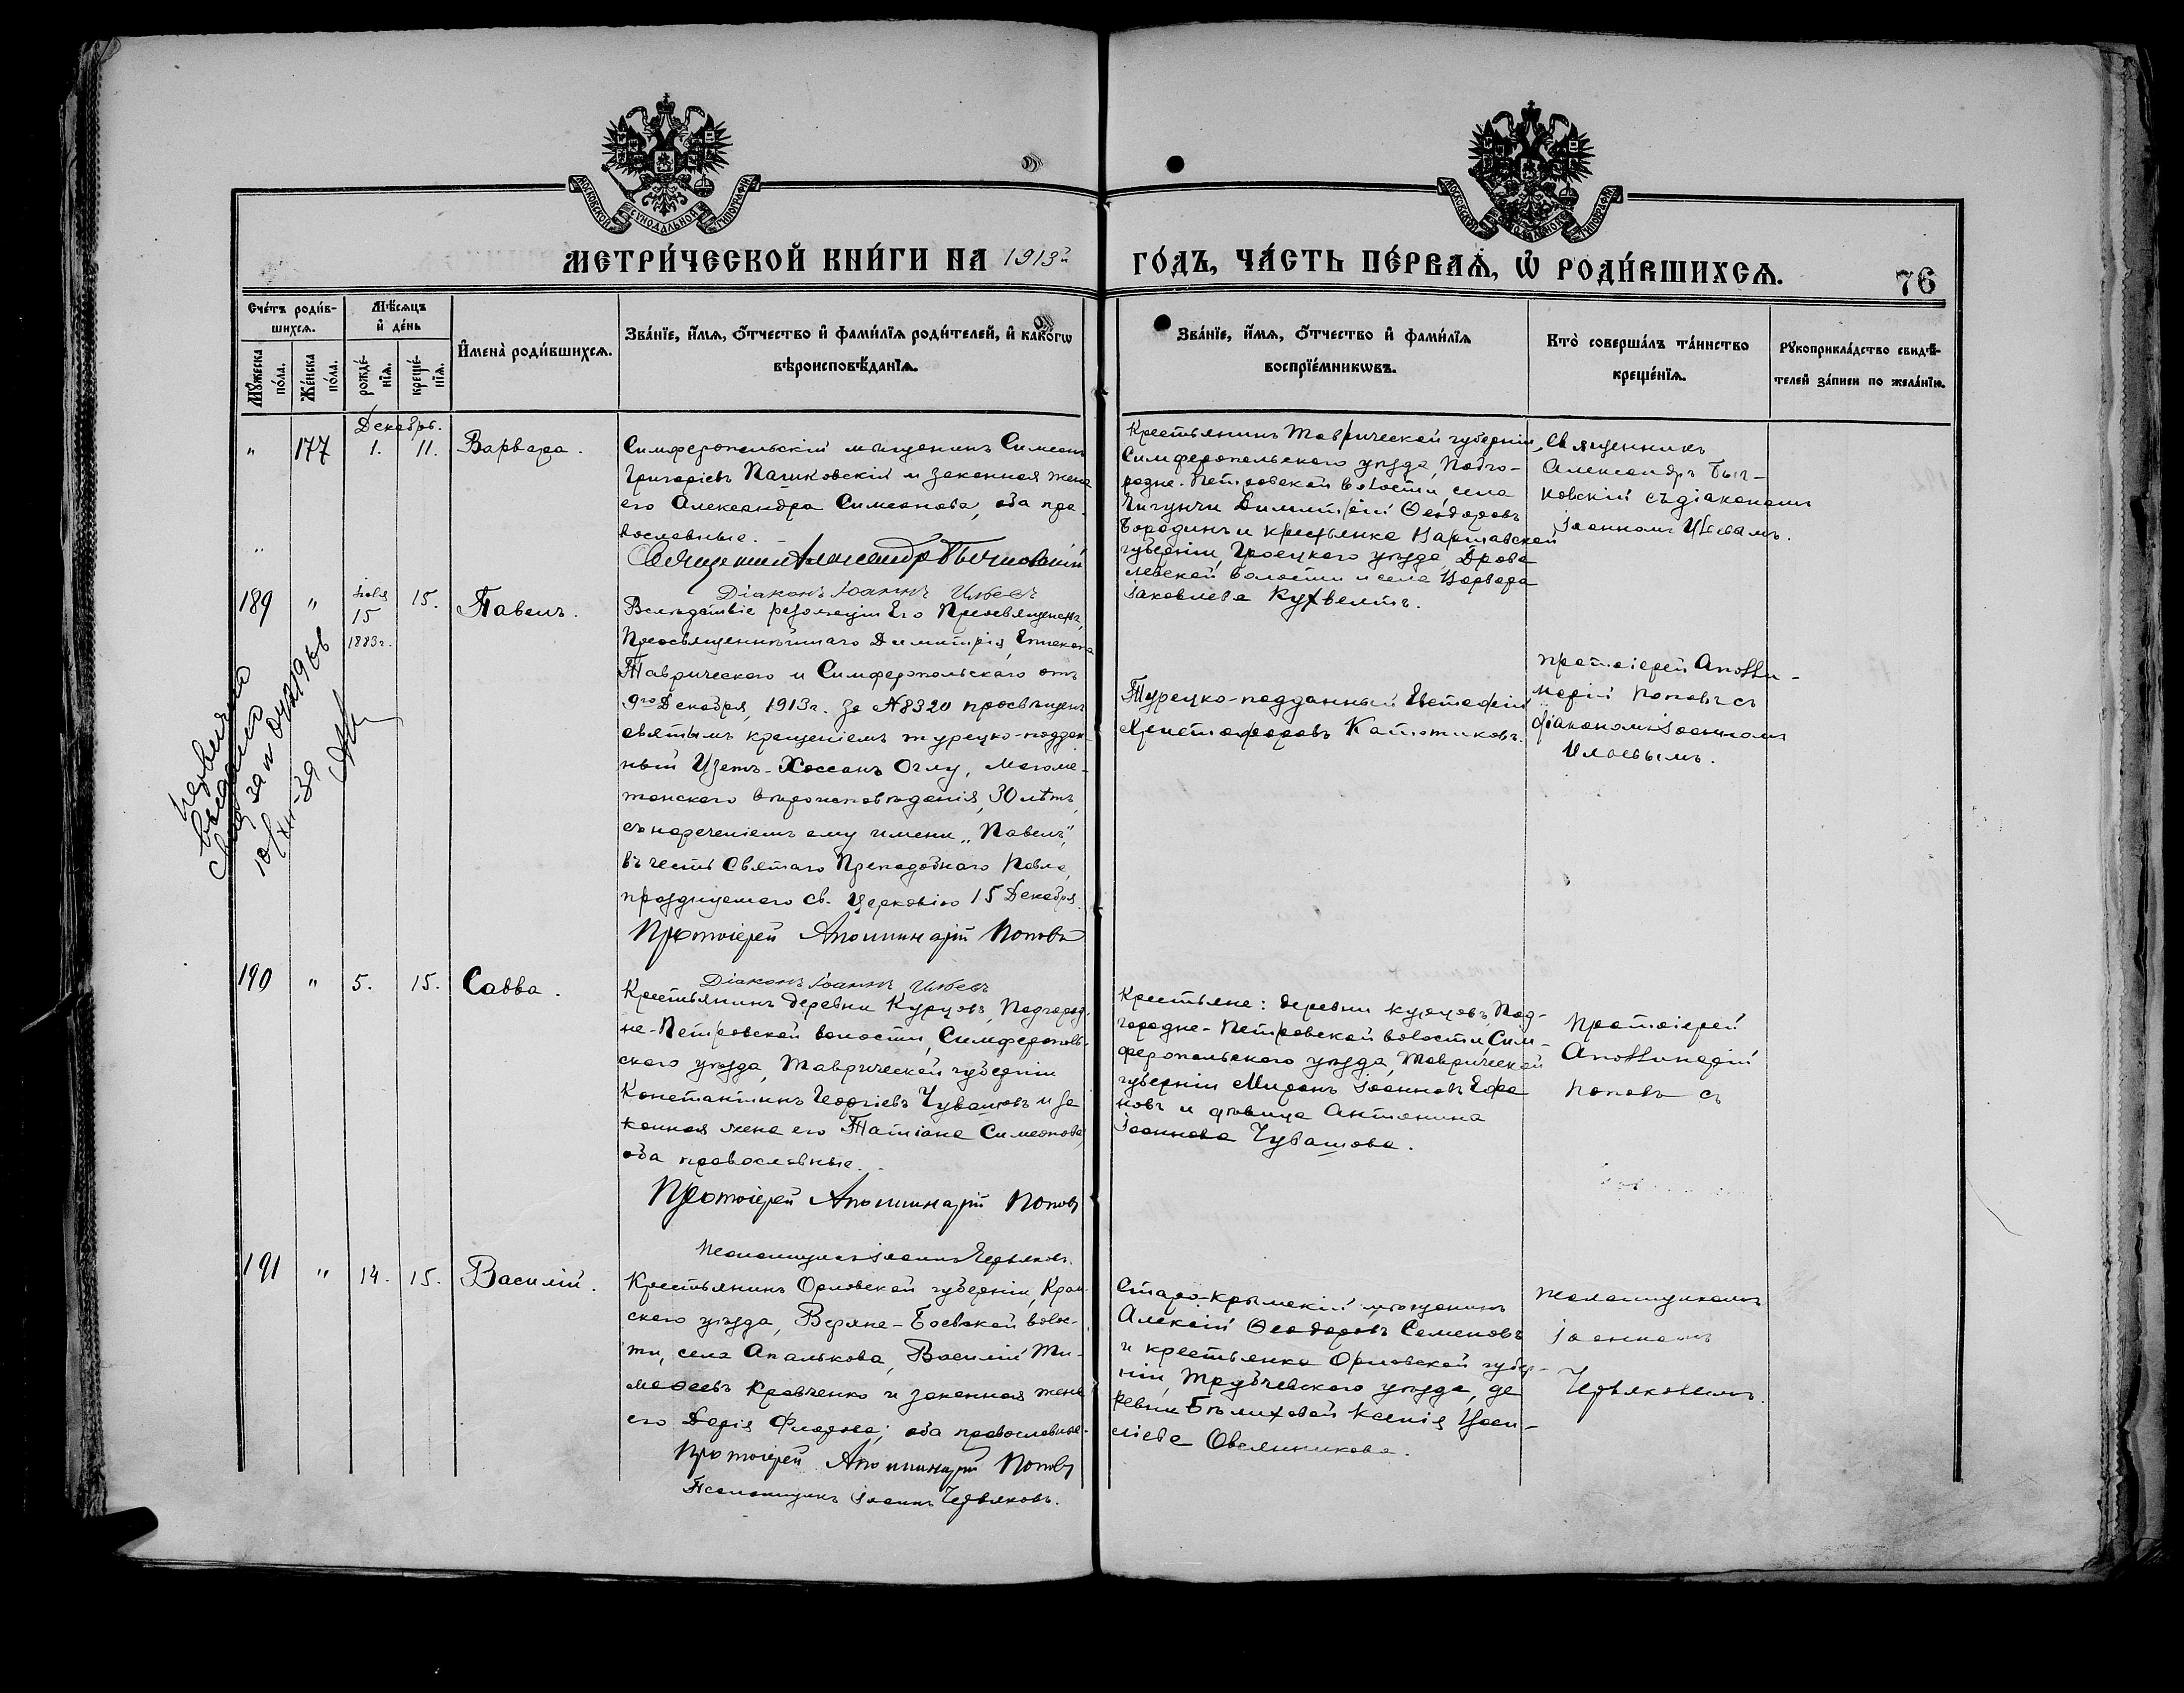 МОСКОВСКОЙ СУНОДАЛЬНОЙ ТИПОГРАФІИ
МОСКОВСКОЙ СУНОДАЛЬНОЙ ТИПОГРАФІИ
МЕТРИ́ЧЕСКОЙ КНИ́ГИ НА 1913й
ГО́ДЪ, ЧА́СТЬ ПЕ́РВАѦ, Ѡ҆ РОДИ́ВШИХСѦ.
76
Сче́тъ роди́в-
шихсѧ.
Мꙋ́жеска по́ла.
Же́нска по́ла.
Мѣ́сѧцъ
и҆ де́нь
рожде́-
нїѧ.
креще́-
нїѧ.
И҆мена̀ роди́вшихсѧ.
Зва́нїе, и҆́мѧ, ѻ҆́тчество и҆ фами́лїѧ роди́телей, и҆ како́гѡ
вѣроисповѣ́данїѧ.
Зва́нїе, и҆́мѧ, ѻ҆́тчество и҆ фами́лїѧ
воспрїе́мникѡвъ.
Кто̀ соверша́лъ та́инство
креще́нїѧ.
Рꙋкоприкла́дство свидѣ́-
телей за́писи по жела́нїю.
Декабрь.
" 177 1. 11. Варвара.
Симферопольскій мѣщанинъ Симеонъ
Григоріевъ Пачиковскій и законная жена
его Александра Симеонова, оба пра-
вославные.
Священникъ Александръ Бычковскій
Діаконъ Іоаннъ Илѣевъ
Крестьянинъ Таврической губерніи,
Симферопольскаго уѣзда, Подго-
родне-Петровской волости, села
Чигунчи Димитрій Ѳеодоровъ
Бородинъ и крестьянка Варшавской
губерніи, Гроецкаго уѣзда,
волости и села Варвара
Іаковлева
Священникъ
Александръ Быч-
ковскій съ діакономъ
Іоанномъ Илѣевымъ.
189 " 15 15. Павелъ.
1883г.
Вслѣдствіе резолюціи Его Преосвященства,
Преосвященнѣйшаго Димитрія, Епископа
Таврическаго и Симферопольскаго отъ
9го Декабря, 1913г. за №8320 просвѣщенъ
святымъ крещеніемъ турецко-поддан-
ный Изетъ-Хассанъ Оглу, магоме-
танскаго вѣроисповѣданія, 30 лѣтъ,
съ нареченіемъ ему имени „Павелъ",
въ честь Святаго Преподобнаго Павла,
празднуемаго св. Церковію 15 Декабря.
Протоіерей Аполлинарій Поповъ
Діаконъ Іоаннъ Илѣевъ
Турецко-подданный Евстафій
Христофоровъ
Протоіерей Аполли-
нарій Поповъ съ
діакономъ Іоанномъ
Илѣевымъ.
выдано
10/XII-39
190 " 5. 15. Савва.
Крестьянинъ деревни Курцовъ, Подгород-
не-Петровской волости, Симферополь-
скаго уѣзда, Таврической губерніи
Константинъ Георгіевъ Чувашовъ и за-
конная жена его Татіана Симеонова,
оба православные.
Протоіерей Аполлинарій Поповъ
Псаломщикъ Іоаннъ Червяковъ.
Крестьяне: деревни Курцовъ, Под-
городне-Петровской волости, Сим-
феропольскаго уѣзда, Таврической
губерніи Миронъ Іоанновъ Ефа-
новъ и дѣвица Антонина
Іоаннова Чувашова.
Протоіерей
Аполлинарій
Поповъ съ
191 " 14. 15. Василій.
Крестьянинъ Орловской губерніи, Кром-
скаго уѣзда, Верхне-Боевской волос-
ти, села Апалькова, Василій Ти-
моѳеевъ Кравченко и законная жена
его Дарія Флорова; оба православные.
Протоіерей Аполлинарій Поповъ
Псаломщикъ Іоаннъ Червяковъ.
Старо-Крымскій мѣщанинъ
Алексій Ѳеодоровъ Семеновъ
и крестьянка Орловской губер-
ніи, Трубчевскаго уѣзда, де-
ревни Ксенія
Овсянникова.
псаломщикомъ
Іоанномъ
Червяковымъ.